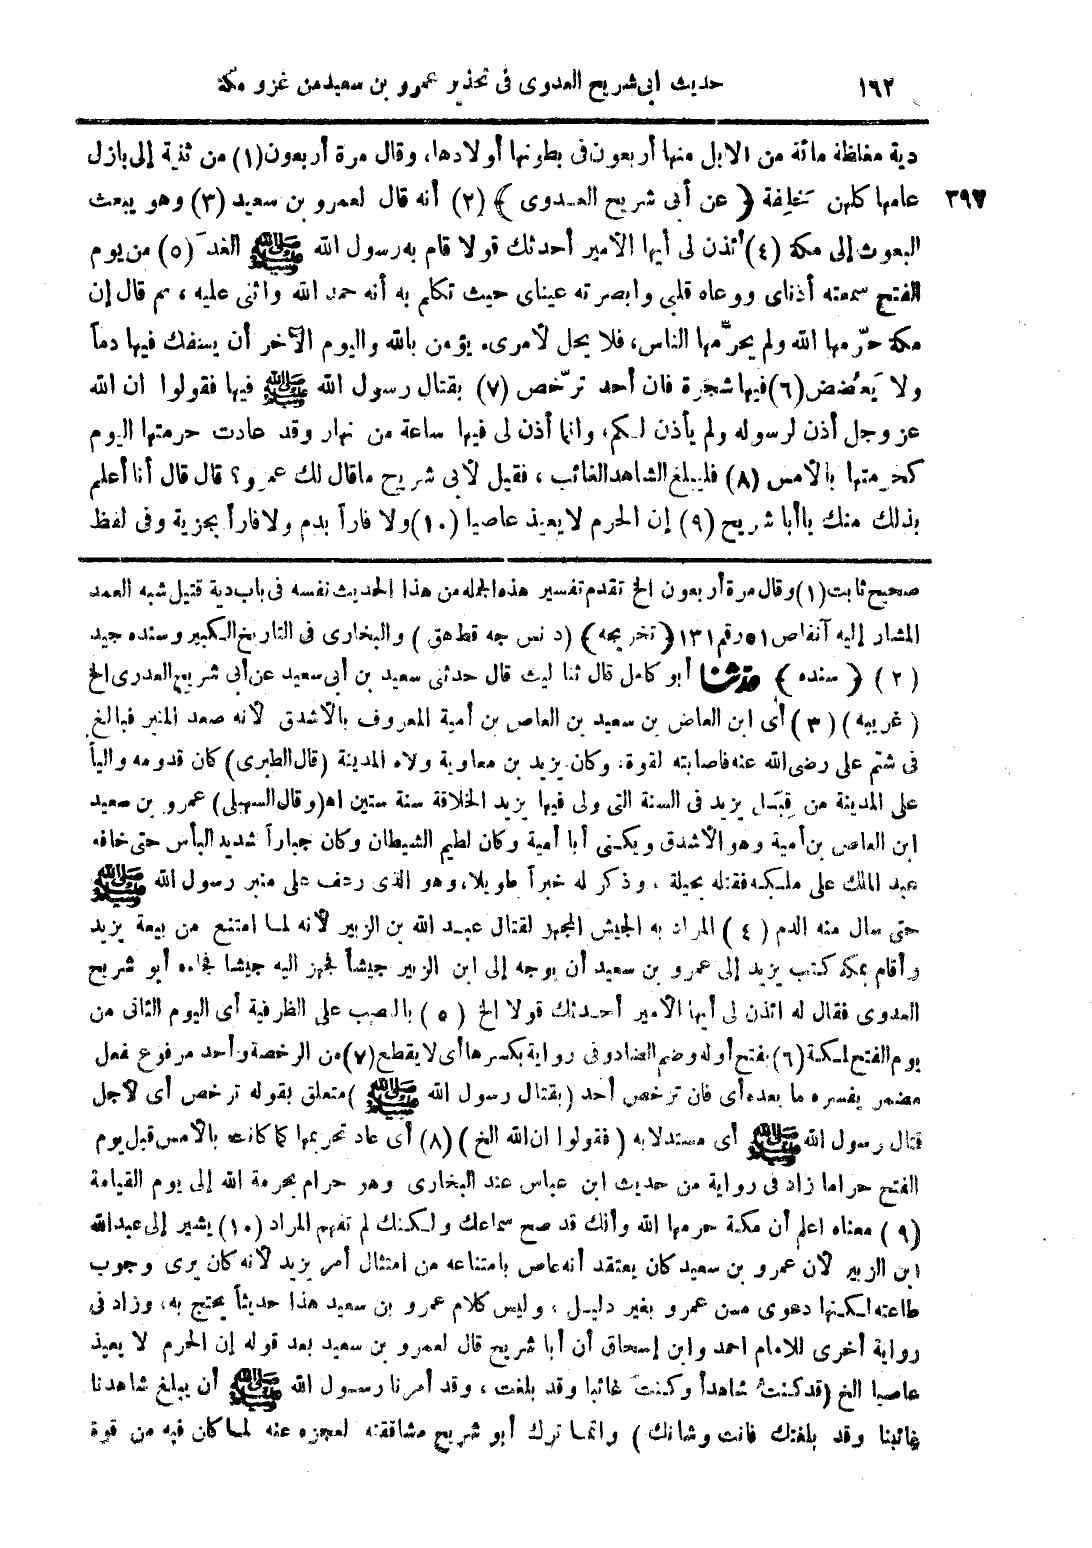 ١٦٢ حديث أبي شريح العدوى فى تحذير عمرو بن سعيد من غزو مكة
دية مغلظة مائة من الابل منها أربعون فى بطونها أولادها، وقال مرة أربعون (١) من ثنية إلى بازل
٣٩٧ عامها كلهن خَلِفة ﴿ عن أبى شريح العـدوى ﴾ (٢) أنه قال لعمرو بن سعيد (٣) وهو يبعث
البعوث إلى مكة (٤) أئذن لى أيها الأمير أحدثك قولا قام به رسول الله ﷺ الغدَ (٥) من يوم
الفتح سمعته أذناى ووعاه قلبى وابصرته عيناى حيث تكلم به أنه حمد الله واثنى عليه ، ثم قال إن
مكة حرّمها الله ولم يحرّمها الناس، فلا يحل لأمرىء يؤمن بالله واليوم الآخر أن يسفك فيها دماً
ولا يَعْضُض (٦) فيها شجرة فان أحد ترخّص (٧) بقتال رسول الله ﷺ فيها فقولوا ان الله
عز وجل أذن لرسوله ولم يأذن لـكم، وانما أذن لى فيها ساعة من نهار وقد عادت حرمتها اليوم
كحرمتها بالأمس (٨) فليبلغ الشاهد الغائب ، فقيل لأبى شريح ماقال لك عمرو؟ قال قال أنا أعلم
بذلك منك ياأبا شريح (٩) إن الحرم لا يعيذ عاصيا (١٠) ولا فاراً بدم ولا فاراً بجزية وفى لفظ
صحيح ثابت (١) وقال مرة أربعون الخ تقدم تفسير هذه الجملة من هذا الحديث نفسه فى باب دية قتيل شبه العمد
المشار إليه آنفا ص ٥١ رقم ١٣١ ﴿ تخريجه ﴾ (د نس جه قط هق ) والبخارى فى التاريخ الـكبير وسنده جيد
(٢) ﴿ سنده ﴾ حدثنا أبو كامل قال ثنا ليث قال حدثنى سعيد بن أبى سعيد عن أبى شريح العدوى الخ
( غريبه ) (٣) أى ابن العاص بن سعيد بن العاص بن أمية المعروف بالأشدق لأنه صعد المنبر فبالغ
فى شتم على رضى الله عنه فاصابته لقوة، وكان يزيد بن معاوية ولاه المدينة (قال الطبرى) كان قدومه والياً
على المدينة من قِبَـل يزيد فى السنة التى ولى فيها يزيد الخلافة سنة ستين اه (وقال السهيلى) عمرو بن سعيد
ابن العاص بن أمية وهو الأشدق ويكـنى أبا أمية وكان لطيم الشيطان وكان جباراً شديد البأس حتى خافه
عبد الملك على ملـكه فقتله بحيلة ، وذكر له خبراً طويلا، وهو الذى رعف على منبر رسول الله ﷺ
حتى سال منه الدم (٤) المراد به الجيش المجهز لقتال عبـد الله بن الزبير لأنه لمـا امتنع من بيعة يزيد
وأقام بمكة كتب يزيد إلى عمرو بن سعيد أن يوجه إلى ابن الزبير جيشاً فجهز اليه جيشا فجاءه أبو شريح
العدوى فقال له ائذن لى أيها الأمير أحـدثك قولا الخ (٥) بالنصب على الظرفية أى اليوم الثانى من
يوم الفتح لمـكة (٦) بفتح أوله وضم الضاد وفى رواية بكسرها أى لا يقطع (٧) من الرخصة وأحد مرفوع فعل
مضمر يفسره ما بعده أى فان ترخص أحد (بقتال رسول الله ﷺ) متعلق بقوله ترخص أى لأجل
قتال رسول الله ﷺ أى مستدلا به ( فقولوا ان الله الخ ) (٨) أى عاد تحريمها كما كانت بالأمس قبل يوم
الفتح حراما زاد فى رواية من حديث ابن عباس عند البخارى وهو حرام بحرمة الله إلى يوم القيامة
(٩) معناه اعلم أن مكة حرمها الله وأنك قد صح سماعك ولـكنك لم تفهم المراد (١٠) يشير إلى عبدالله
ابن الزبير لأن عمرو بن سعيد كان يعتقد أنه عاص بامتناعه من امتثال أمر يزيد لأنه كان يرى وجوب
طاعته لـكنها دعوى مـن عمرو بغير دليـل ، وليس كلام عمرو بن سعيد هذا حديثاً يحتج به، وزاد فى
رواية أخرى للامام احمد وابن إسحاق أن أبا شريح قال لعمرو بن سعيد بعد قوله إن الحرم لا يعيذ
عاصيا الخ (قد كـنتُ شاهداً وكنتَ غائبا وقد بلغت ، وقد أمرنا رسـول الله ﷺ أن يبلغ شاهدنا
غائبنا وقد بلغتك فانت وشانك ) وانمـا ترك أبو شريح مشاققته لعجزه عنه لمـا كان فيه من قوة